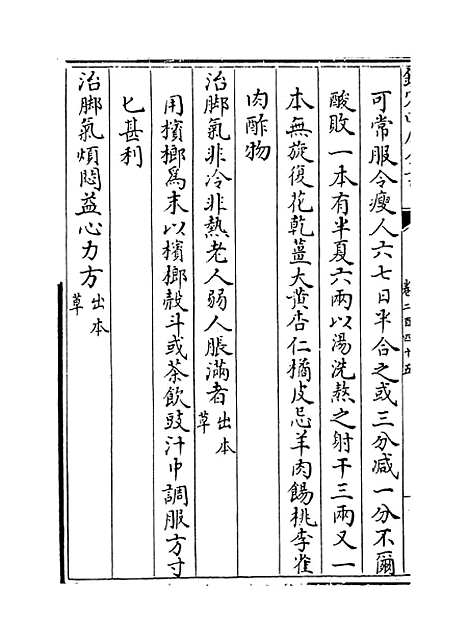 卷二百四十五
可常服令瘦人六七日半合之或三分減一分不爾
酸敗一本有半夏六兩以湯洗熬之射干三兩又一
本無旋復花乾薑大黃杏仁橘皮忌羊肉餳桃李雀
肉酢物
治脚氣非冷非熱老人弱人脹滿者出本草
用檳榔爲末以檳榔殻斗或茶飲豉汁中調服方寸
匕甚利
治脚氣煩悶益心力方出本草